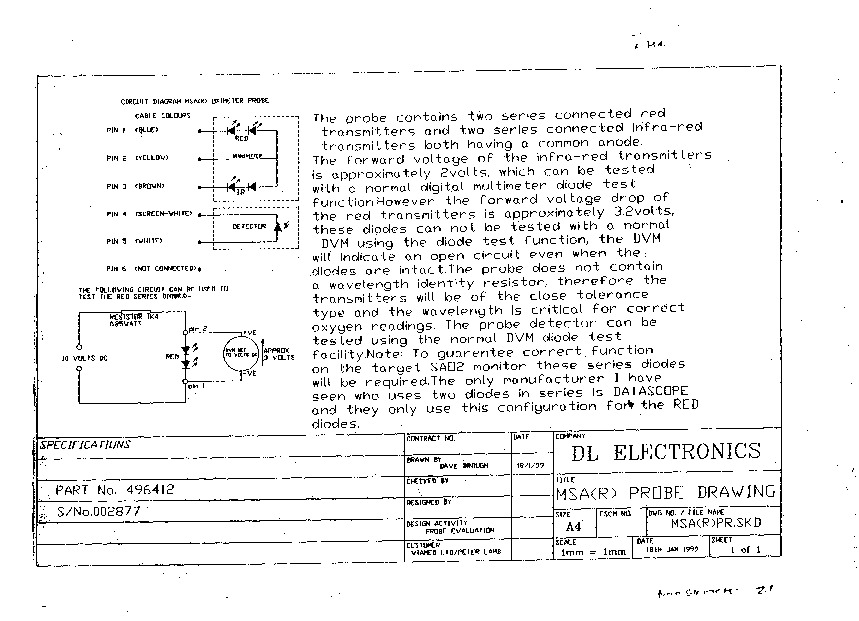 CIRCUIT DIAGRAM MSA(R) OXIMETER PROBE
CABLE COLOURS
PIN 1 (BLUE)
RED
PIN 2 (YELLOW)
PIN 3 (BROWN)
IR
PIN 4 (SCREEN-WHITE)
DETECTOR
PIN 5 (WHITE)
PIN 6 (NOT CONNECTED)
THE FOLLOWING CIRCUIT CAN BE USED TO
TEST THE RED SERIES DIODES-
RESISTER 1K4
0.25WATT
PIN 2
+VE
10 VOLTS DC
RED
DVM SET
TO VOLTS DC
APPROX
3 VOLTS
-VE
PIN 1
The probe contains two series connected red
transmitters and two series connected Infra-red
transmitters both having a common anode.
The forward voltage of the infra-red transmitlers
is approximately 2volts, which can be tested
with a normal digital multimeter diode test
function.However the forward voltage drop of
the red transmitters is approximately 3.2volts,
these diodes can not be tested with a normal
DVM using the diode test function, the DVM
will indicate an open circuit even when the
diodes are intact.The probe does not contain
a wavelength identity resistor, therefore the
transmitters will be of the close tolerance
type and the wavelength is critical for correct
oxygen readings. The probe detector can be
tested using the normal DVM diode test
facility.Note: To guarentee correct function
on the target SAO2 monitor these series diodes
will be required.The only manufacturer I have
seen who uses two diodes in series is DATASCOPE
and they only use this configuration for the RED
diodes.
SPECIFICATIONS
PART No. 496412
S/No.002877
CONTRACT NO.
DATE
COMPANY
DL ELECTRONICS
DRAWN BY
DAVE
18/1/99
CHECKED BY
TITLE
MSA(R) PROBE DRAWING
DESIGNED BY
SIZE
A4
FSCM NO.
DWG NO. / FILE NAME
MSA(R)PR.SKD
DESIGN ACTIVITY
PROBE EVALUATION
CUSTOMER
VIAMED LTD/PETER LAMB
SCALE
1mm = 1mm
DATE
18th JAN 1999
SHEET
1 of 1